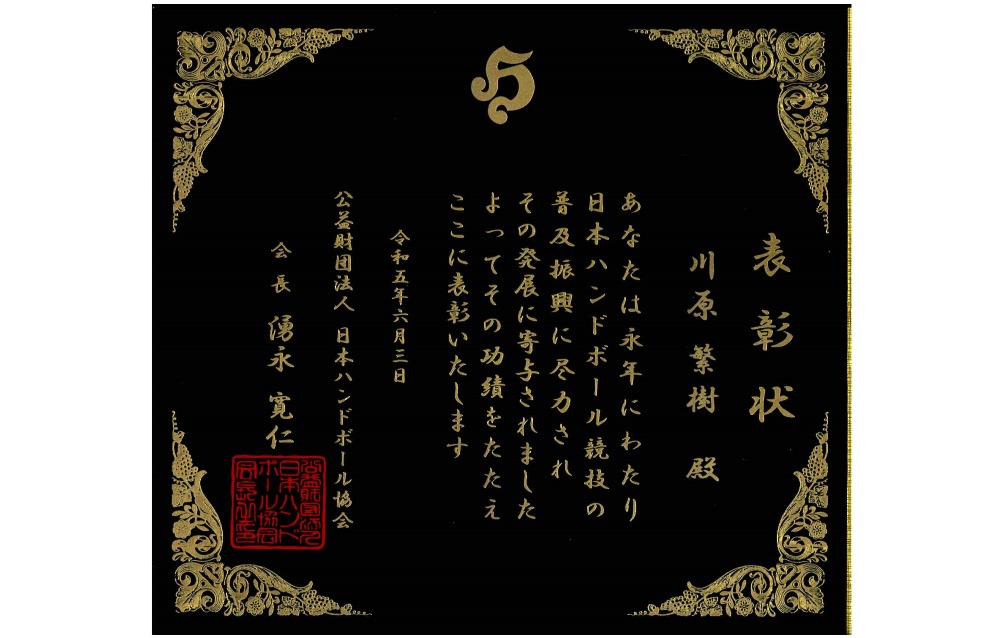 表彰状
川原繁樹 殿
あなたは永年にわたり
日本ハンドボール競技の
普及振興に尽力され
その発展に寄与されました
よってその功績をたたえ
ここに表彰いたします
令和五年六月三日
公益財団法人 日本ハンドボール協会
会長 湧永 寛仁